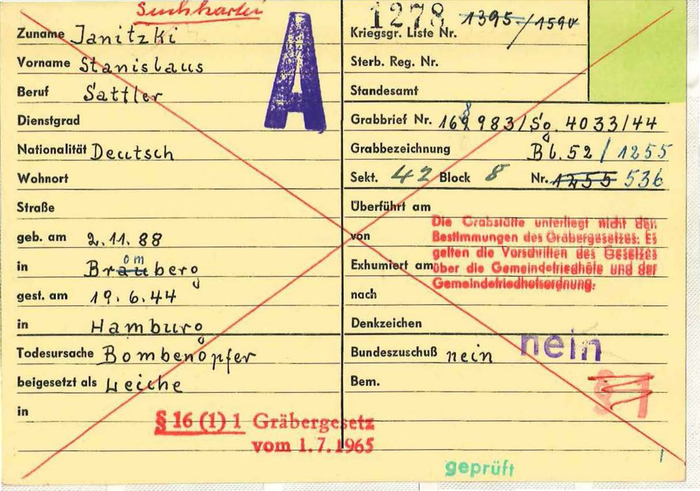 Suchkartei
A
Zuname Janitzki
Vorname Stanislaus
Beruf Sattler
Dienstgrad
Nationalität Deutsch
Wohnort
Straße
geb. am 2.11.88
in Bromberg
gest. am 19.6.44
in Hamburg
Todesursache Bombenopfer
beigesetzt als Leiche
in
§ 16 (1) 1 Gräbergesetz
vom 1.7.1965
1278 1395./1590
Kriegsgr. Liste Nr.
Sterb. Reg. Nr.
Standesamt
Grabbrief Nr. 168983/Sg. 4033/44
Grabbezeichnung Bl. 52 / 1255
Sekt. 42 Block 8 Nr. 1255 536
Überführt am
von
Exhumiert am
nach
Die Grabstätte unterliegt nicht den
Bestimmungen des Gräbergesetzes. Es
gelten die Vorschriften des Gesetzes
über die Gemeindefriedhöfe und der
Gemeindefriedhofsordnung.
Denkzeichen
Bundeszuschuß nein nein
Bem.
§ 1
geprüft